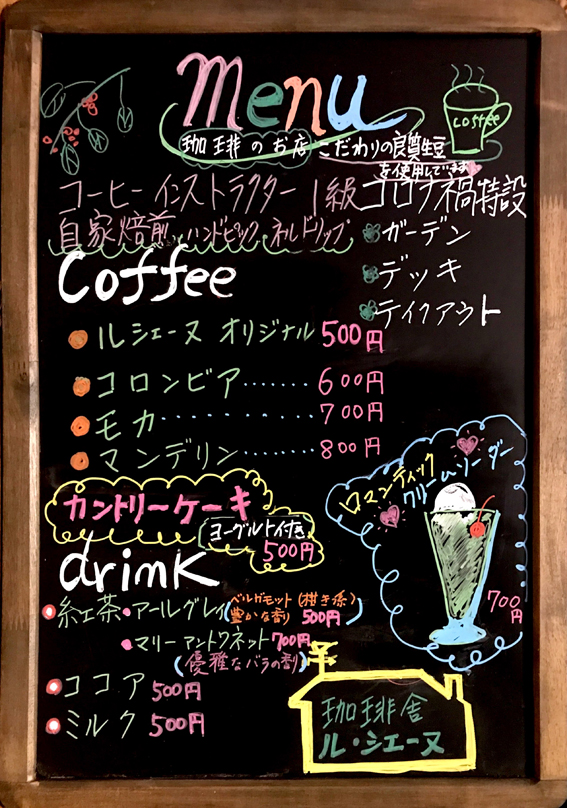 menu
coffee
珈琲のお店 こだわりの良質生豆
を使用しています
コーヒーインストラクター1級
自家焙煎、ハンドピック、ネルドリップ
コロナ禍特設
ガーデン
デッキ
テイクアウト
Coffee
ルシェーヌ オリジナル 500円
コロンビア・・・・・・・ 600円
モカ・・・・・・・・・・・ 700円
マンデリン・・・・・・・ 800円
カントリーケーキ
ヨーグルト付き
500円
ロマンティック
クリームソーダー
700円
drink
紅茶・アールグレイ(ベルガモット(柑き係)
豊かな香り 500円)
・マリーアントワネット 700円
(優雅なバラの香り)
ココア 500円
ミルク 500円
珈琲舎
ル・シエーヌ